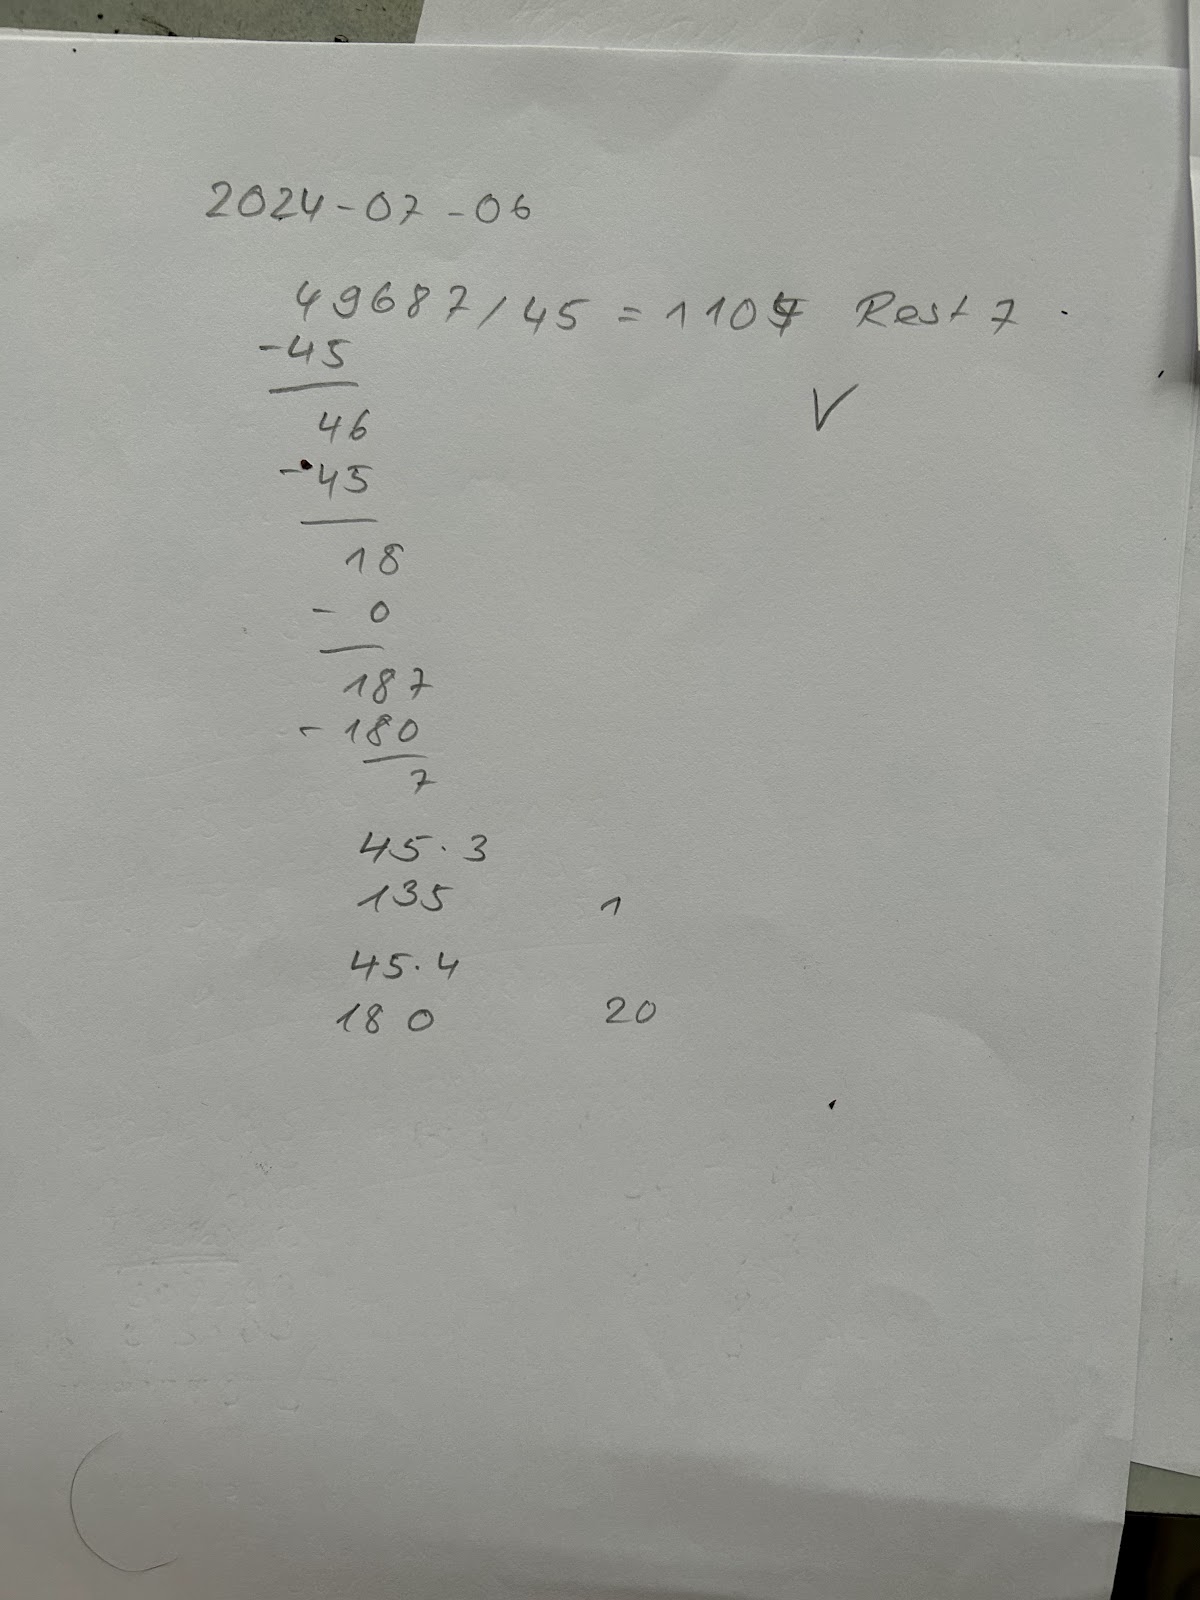 2024-07-06
49687/45 = 1104 Rest 7
-45
46
-45
18
- 0
187
- 180
7
45·3
135 1
45·4
180 20